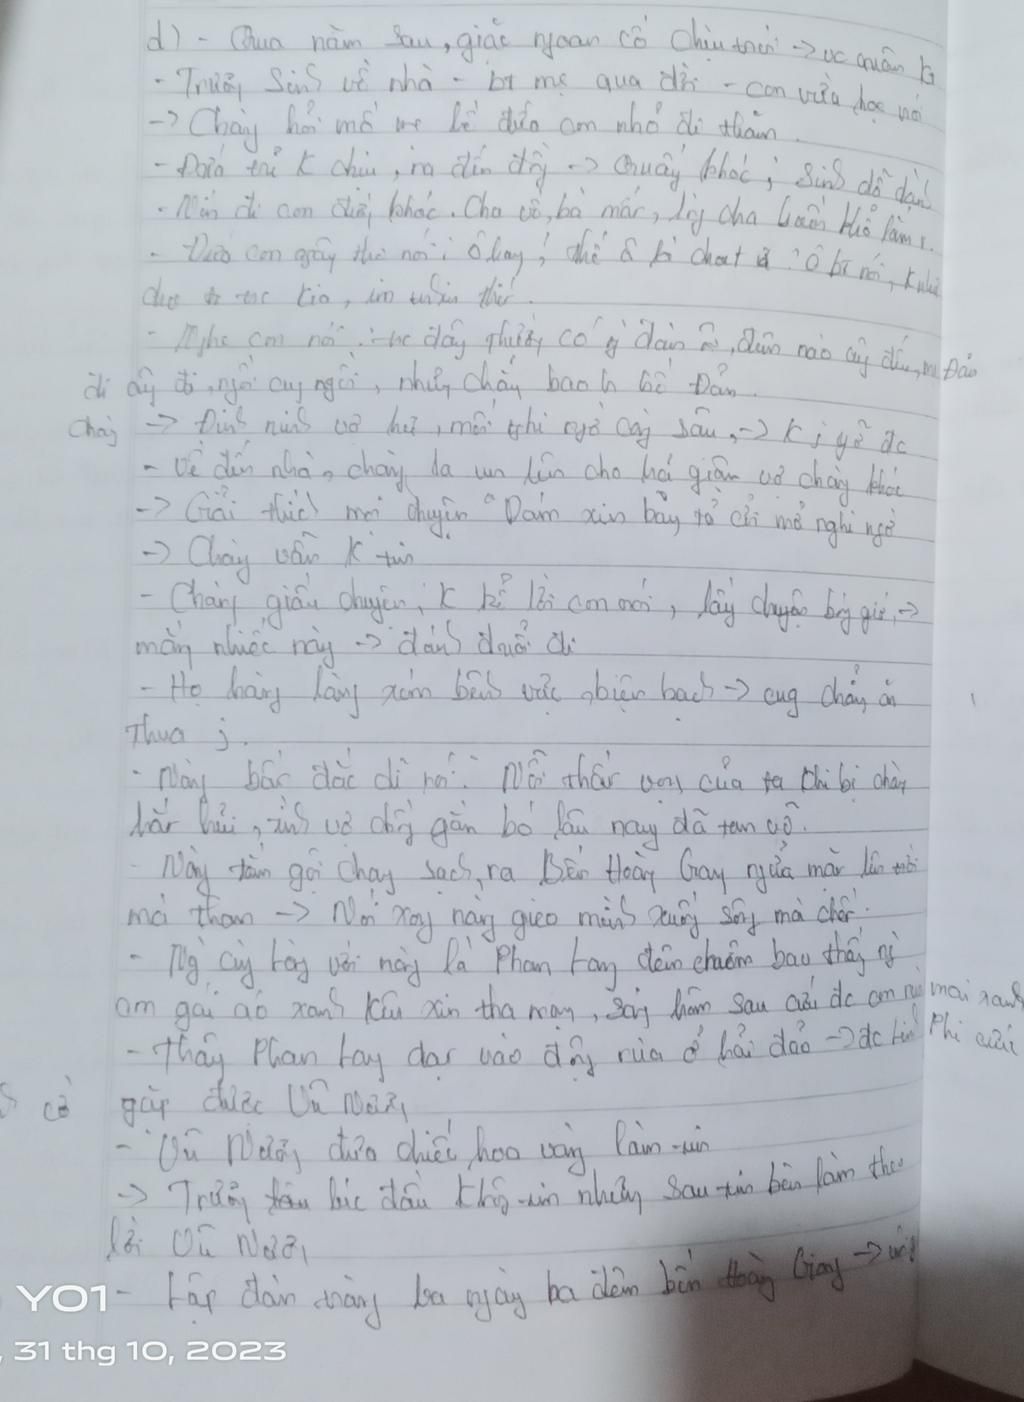 d) - Qua năm sau, giặc ngoan cố chịu trói → vc quân
- Trương Sinh về nhà - bt mẹ qua đời - con vừa học nói
→ Chàng hỏi mồ mẹ bế đứa con nhỏ đi thăm.
- Đứa trẻ k chịu, ra đến đồng → Quấy khóc; Sinh dỗ dành
- Nín đi con đừng khóc. Cha về, bà mất, lòng cha buồn khổ lắm r.
- Đứa con ngây thơ nói: Ô hay! thế ô là cha tôi ư? Ô bt nói, k như
cha tr kia, im thin thít.
- Nghe con nói: trc đây thường có ng đàn ô, đêm nào cũng đến, mẹ Đản
đi cũng đi, ngồi cũng ngồi, nhưng chẳng bao h bế Đản.
Chàng → Đinh ninh vợ hư, mối nghi ngờ càng sâu, → k j gỡ đc
- Về đến nhà, chàng la um lên cho hả giận vợ chàng khóc
→ Giải thích mọi chuyện "Dám xin bày tỏ cởi mở nghi ngờ
→ Chàng vẫn k tin
- Chàng giấu chuyện, k kể lời con nói, lấy chuyện bóng gió, →
mắng nhiếc nàng → đánh đuổi đi
- Họ hàng làng xóm bênh vực, biện bạch → cug chẳng ăn
thua j.
- Nàng bất đắc dĩ nói: " Nỗi thất vọng của ta khi bị chàng
hắt hủi, tình vợ chồng gắn bó lâu nay đã tan vỡ.
- Nàng tắm gội chay sạch, ra Bến Hoàng Giang ngửa mặt lên trời
mà than → Nói xong nàng gieo mình xuống sông mà chết.
- Ng cùng làng với nàng là Phan Lang đêm chiêm bao thấy ng
con gái áo xanh kêu xin tha mạng, sáng hôm sau đc con rùa mai xanh
- Thấy Phan Lang dạt vào động rùa ở hải đảo → đc Linh Phi cứu
gặp được Vũ Nương
- Vũ Nương đưa chiếc hoa vàng làm tin
→ Trương lúc đầu không tin nhưng sau tin bèn làm theo
lời Vũ Nương
- Lập đàn tràng ba ngày ba đêm bến Hoàng Giang →
YO1
31 thg 10, 2023